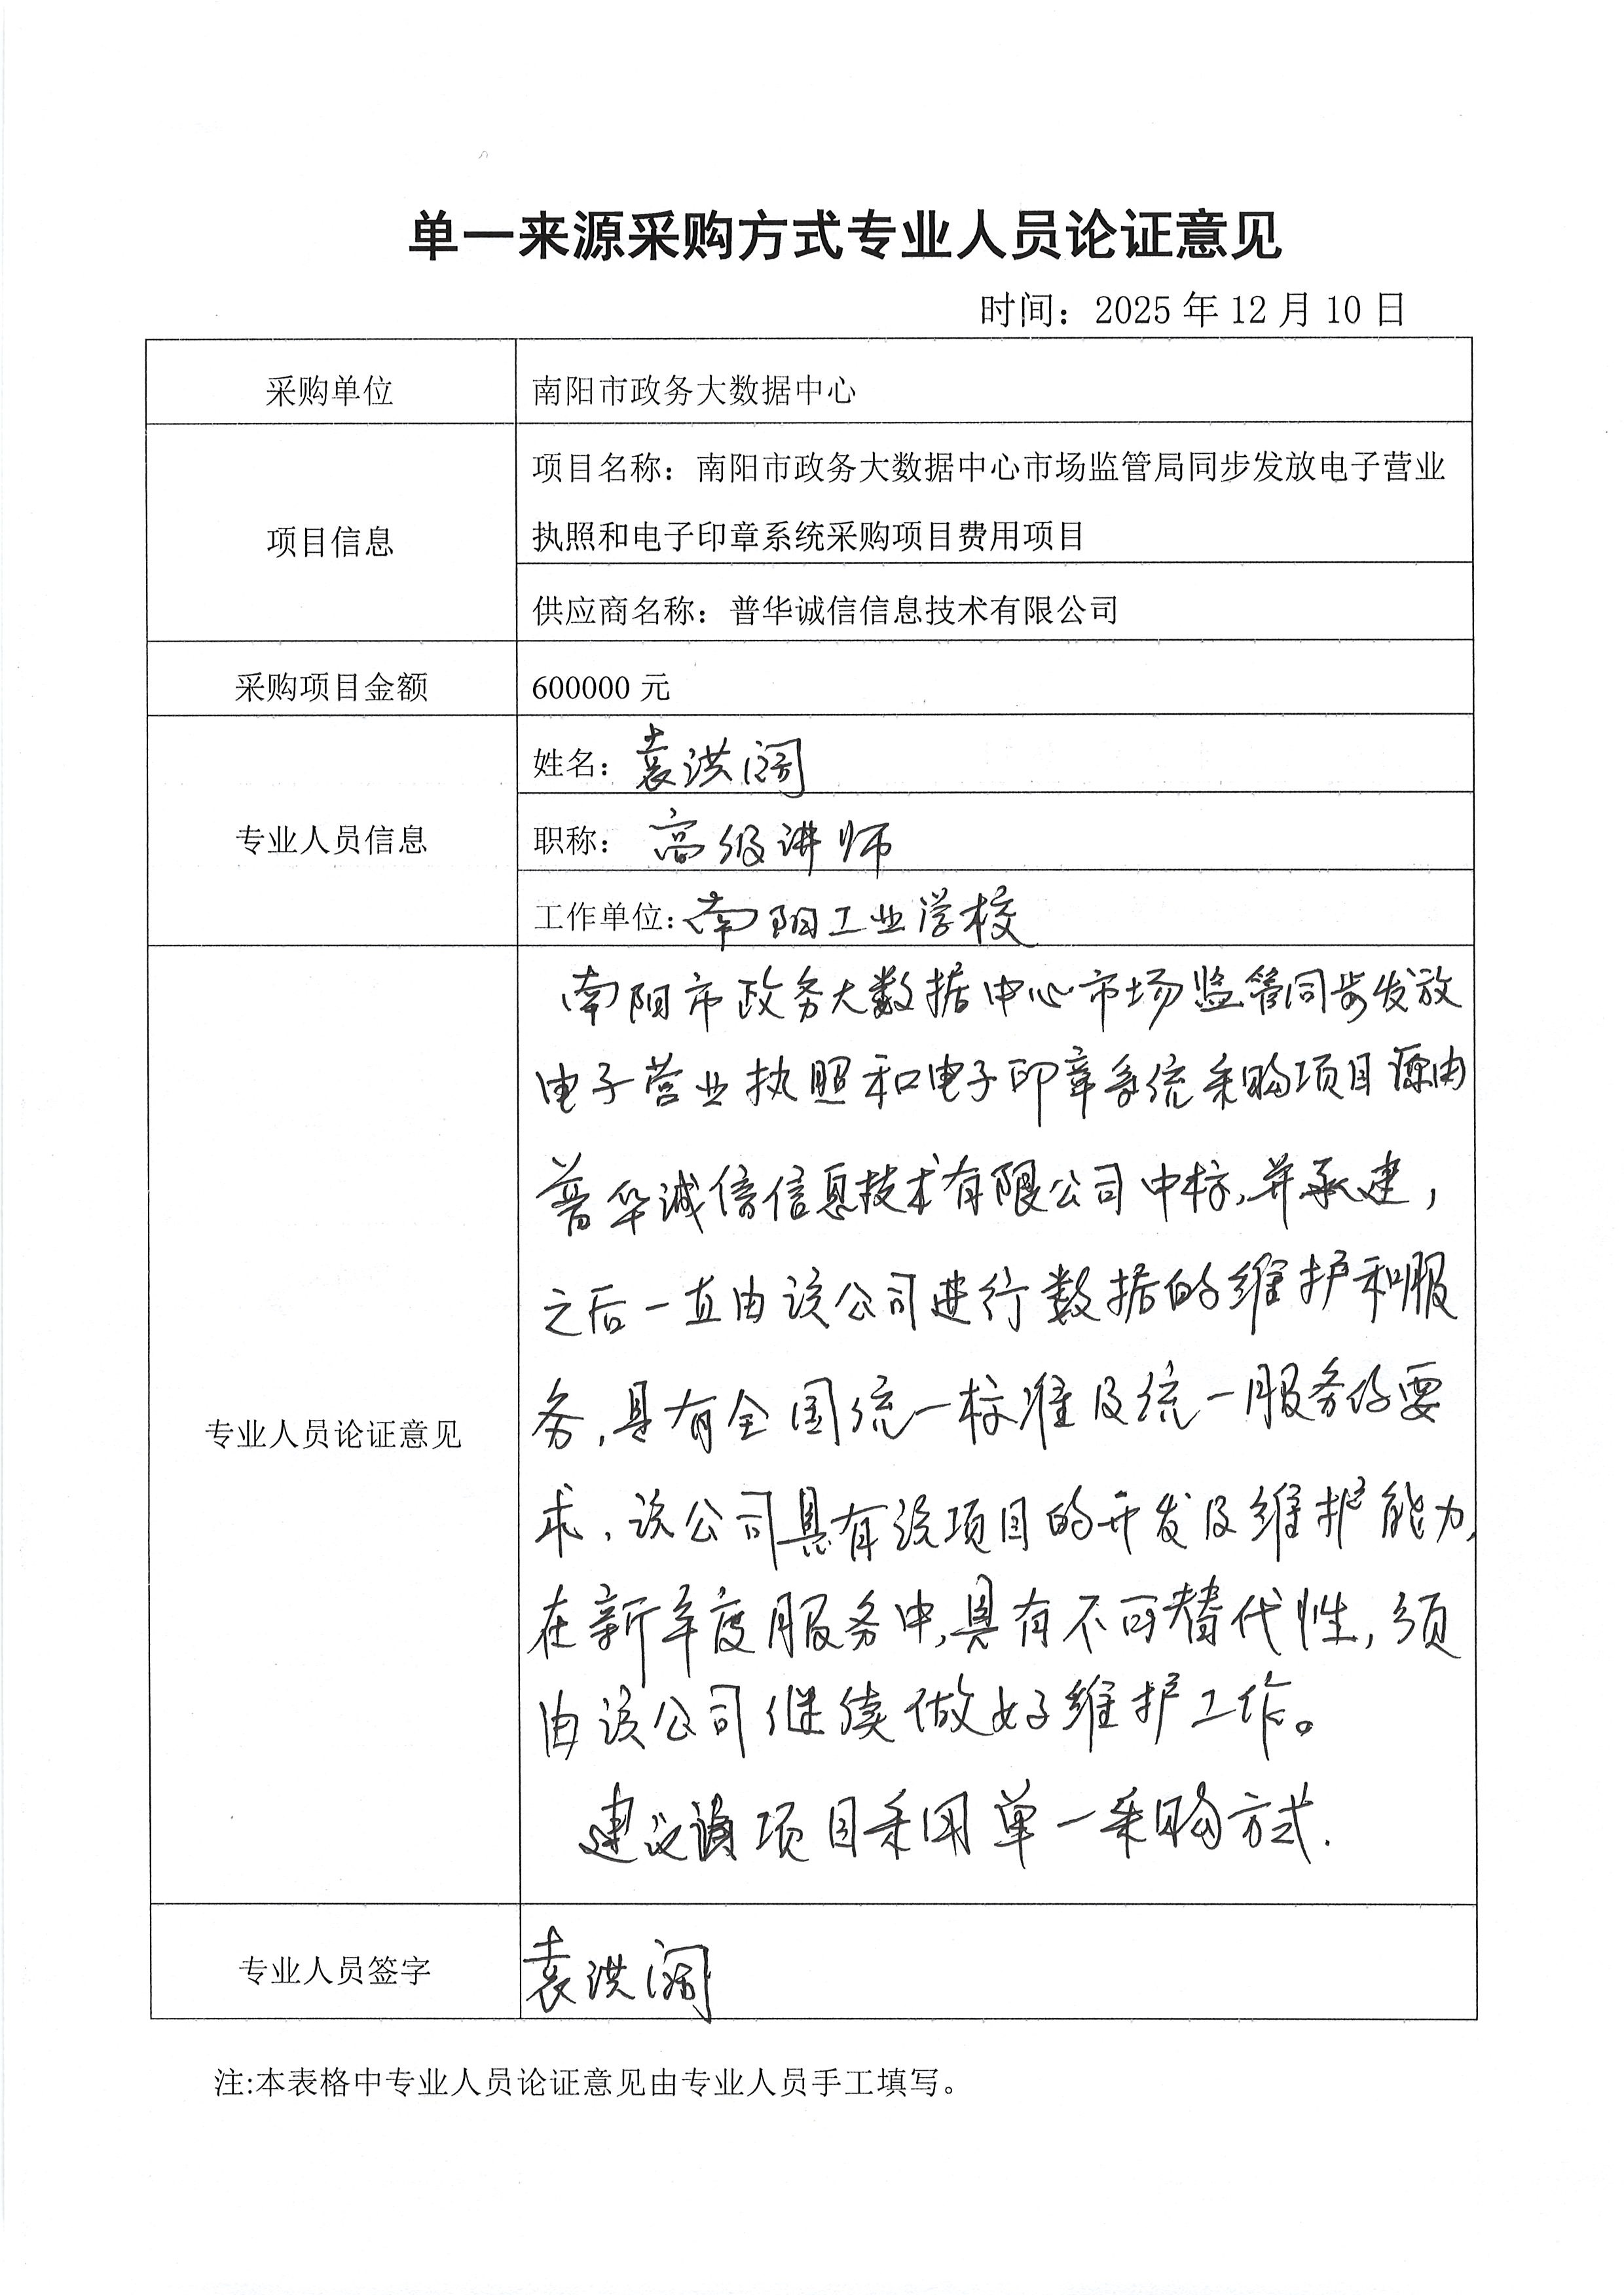 单一来源采购方式专业人员论证意见
时间：2025年12月10日
采购单位
南阳市政务大数据中心
项目信息
项目名称：南阳市政务大数据中心市场监管局同步发放电子营业
执照和电子印章系统采购项目费用项目
供应商名称：普华诚信信息技术有限公司
采购项目金额
600000元
专业人员信息
姓名：袁洪阔
职称：高级讲师
工作单位：南阳工业学校
专业人员论证意见
南阳市政务大数据中心市场监管同步发放
电子营业执照和电子印章系统采购项目源由
普华诚信信息技术有限公司中标，并承建，
之后一直由该公司进行数据的维护和服
务，具有全国统一标准及统一服务的要
求，该公司具有该项目的开发及维护能力，
在新年度服务中，具有不可替代性，须
由该公司继续做好维护工作。
建议该项目采用单一采购方式.
专业人员签字
袁洪阔
注:本表格中专业人员论证意见由专业人员手工填写。